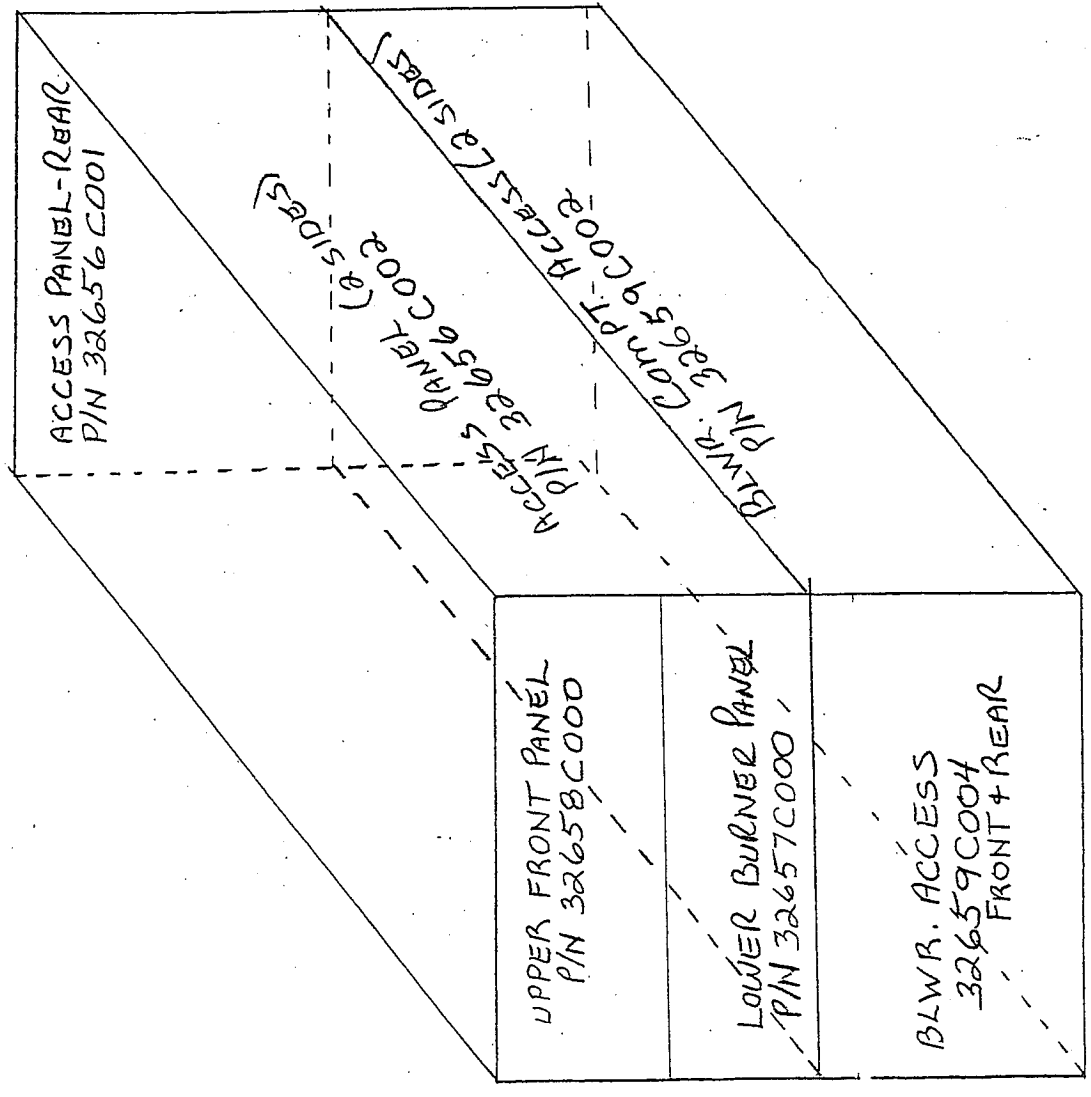 ACCESS PANEL-REAR
P/N 32656C001
ACCESS PANEL (2 SIDES)
P/N 32656C002
BLWR. COMPT. ACCESS (2 SIDES)
P/N 32659C002
UPPER FRONT PANEL
P/N 32658C000
LOWER BURNER PANEL
P/N 32657C000
BLWR. ACCESS
32659C004
FRONT + REAR